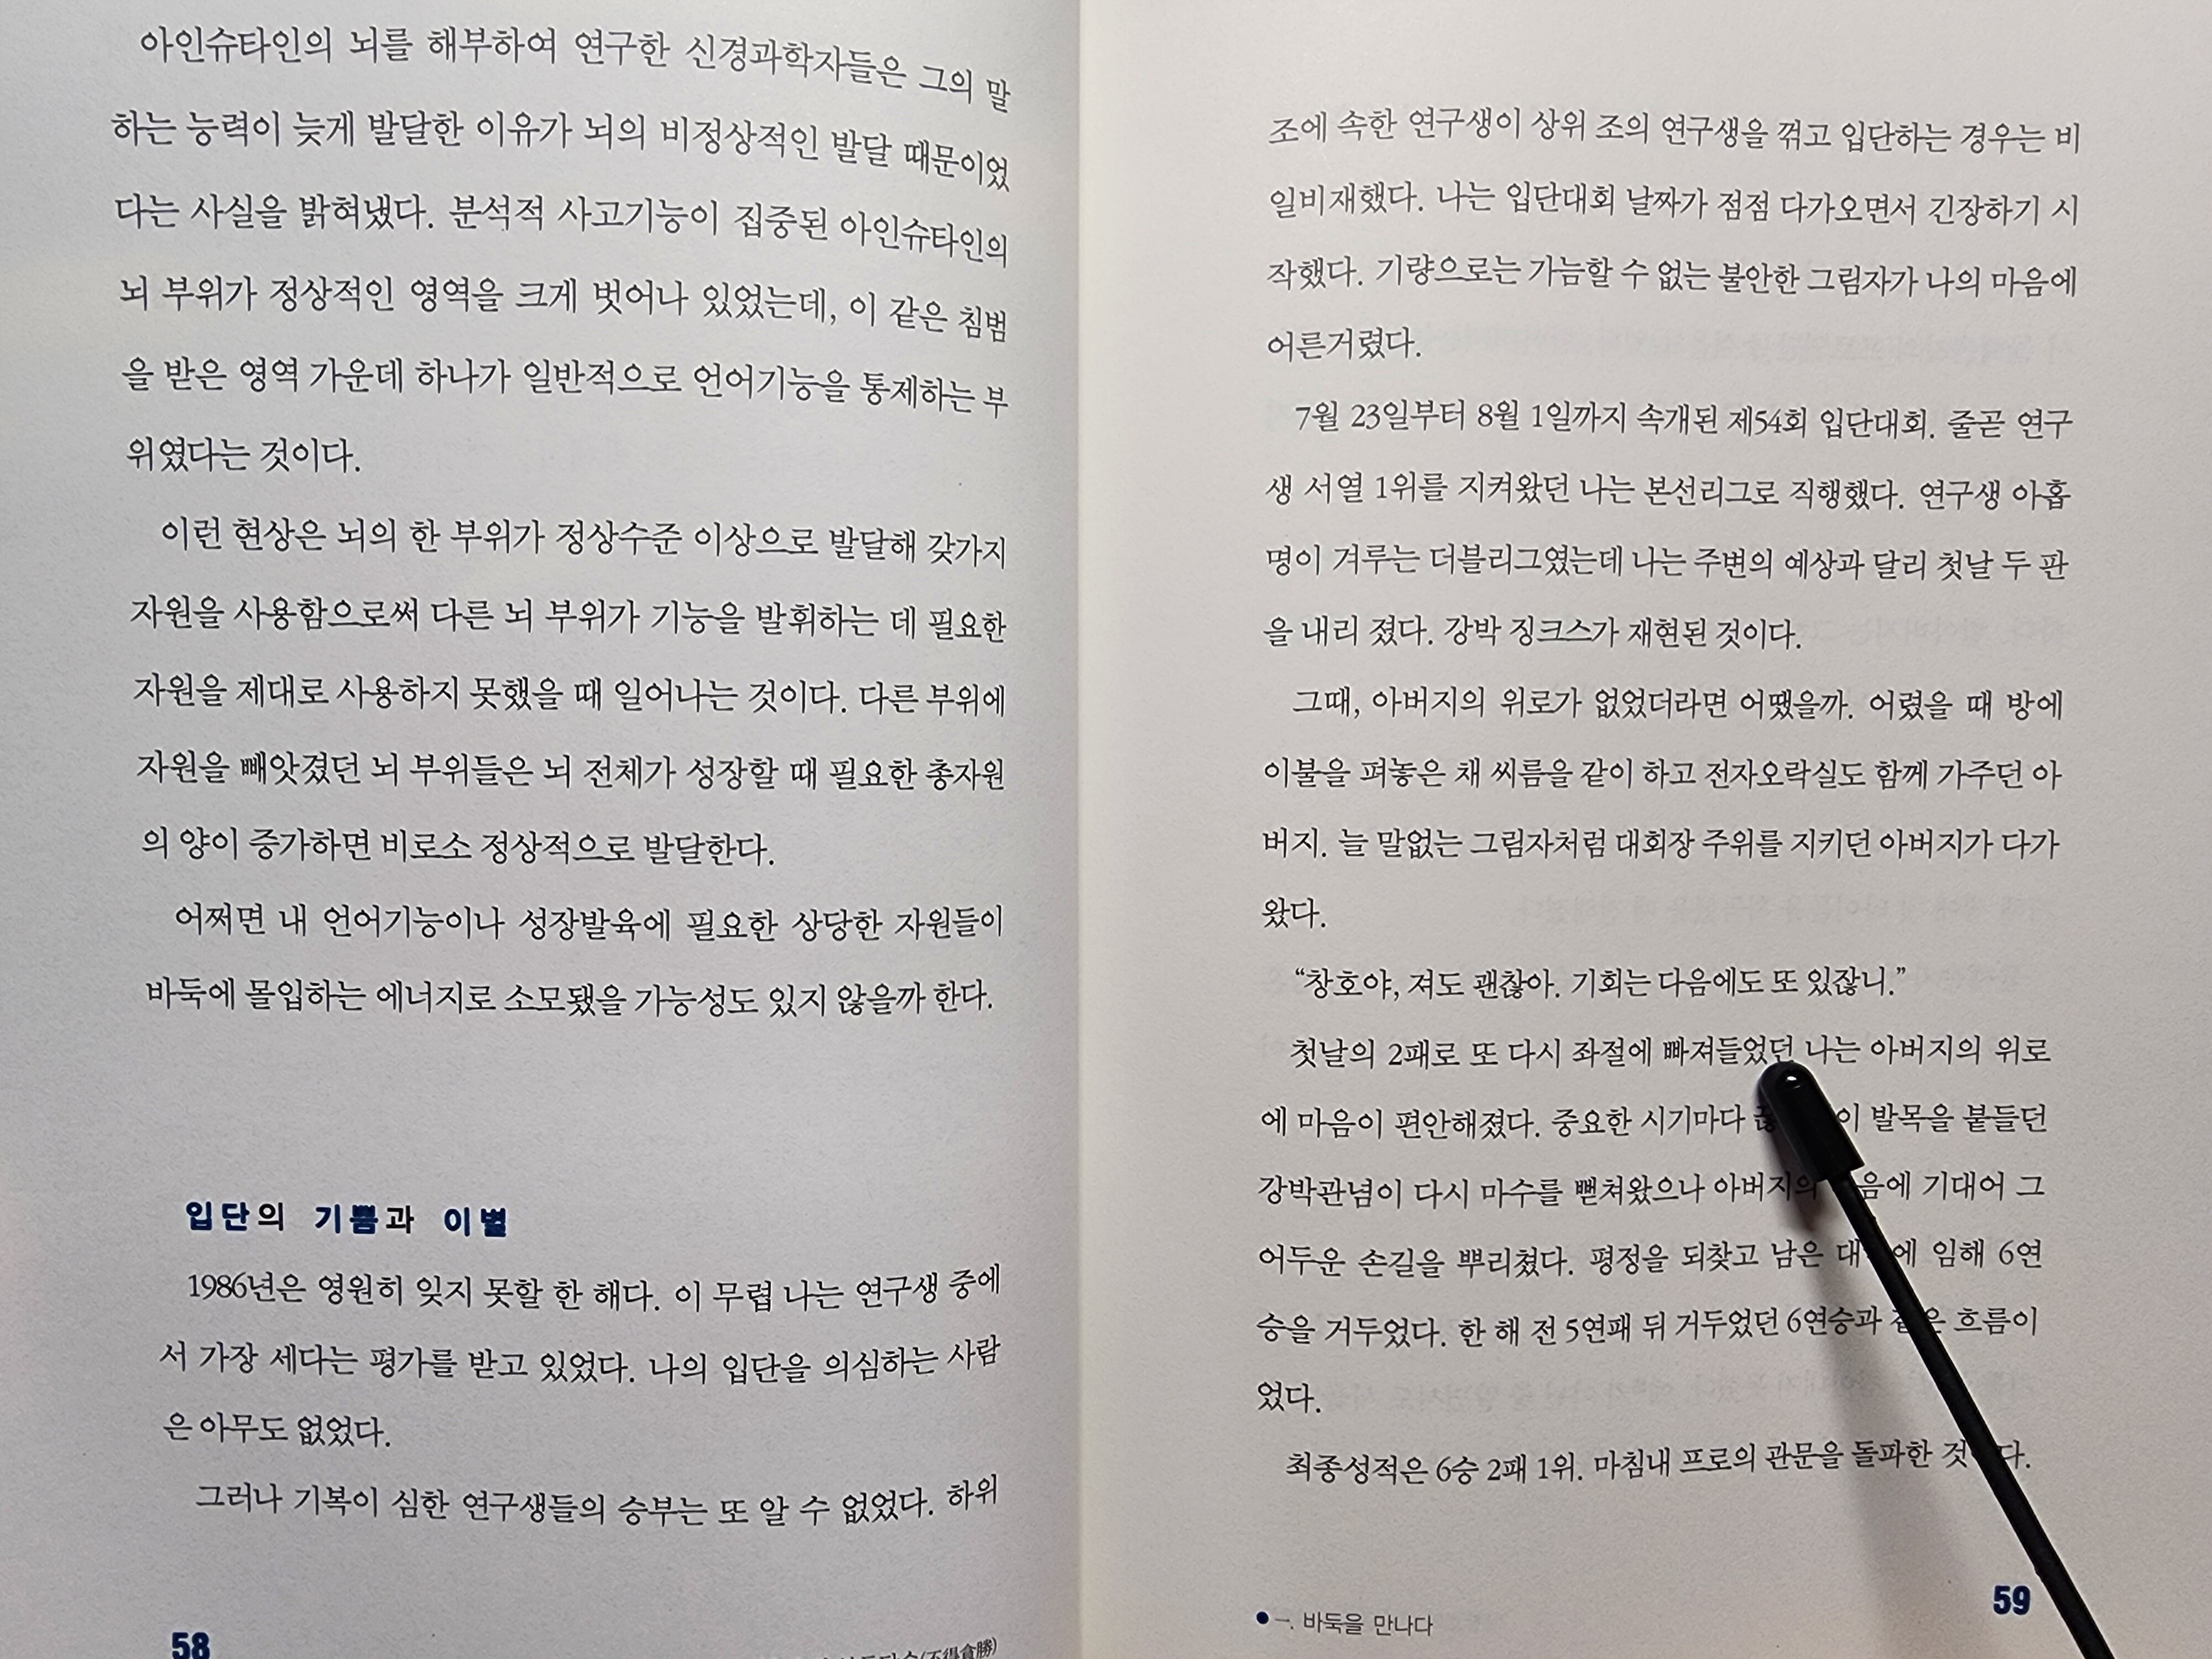 아인슈타인의 뇌를 해부하여 연구한 신경과학자들은 그의 말
하는 능력이 늦게 발달한 이유가 뇌의 비정상적인 발달 때문이었
다는 사실을 밝혀냈다. 분석적 사고기능이 집중된 아인슈타인의
뇌 부위가 정상적인 영역을 크게 벗어나 있었는데, 이 같은 침범
을 받은 영역 가운데 하나가 일반적으로 언어기능을 통제하는 부
위였다는 것이다.
이런 현상은 뇌의 한 부위가 정상수준 이상으로 발달해 갖가지
자원을 사용함으로써 다른 뇌 부위가 기능을 발휘하는 데 필요한
자원을 제대로 사용하지 못했을 때 일어나는 것이다. 다른 부위에
자원을 빼앗겼던 뇌 부위들은 뇌 전체가 성장할 때 필요한 총자원
의 양이 증가하면 비로소 정상적으로 발달한다.
어쩌면 내 언어기능이나 성장발육에 필요한 상당한 자원들이
바둑에 몰입하는 에너지로 소모됐을 가능성도 있지 않을까 한다.
입단의 기쁨과 이별
1986년은 영원히 잊지 못할 한 해다. 이 무렵 나는 연구생 중에
서 가장 세다는 평가를 받고 있었다. 나의 입단을 의심하는 사람
은 아무도 없었다.
그러나 기복이 심한 연구생들의 승부는 또 알 수 없었다. 하위
58
(不得貪勝)
조에 속한 연구생이 상위 조의 연구생을 꺾고 입단하는 경우는 비
일비재했다. 나는 입단대회 날짜가 점점 다가오면서 긴장하기 시
작했다. 기량으로는 가늠할 수 없는 불안한 그림자가 나의 마음에
어른거렸다.
7월 23일부터 8월 1일까지 속개된 제54회 입단대회. 줄곧 연구
생 서열 1위를 지켜왔던 나는 본선리그로 직행했다. 연구생 아홉
명이 겨루는 더블리그였는데 나는 주변의 예상과 달리 첫날 두 판
을 내리 졌다. 강박 징크스가 재현된 것이다.
그때, 아버지의 위로가 없었더라면 어땠을까. 어렸을 때 방에
이불을 펴놓은 채 씨름을 같이 하고 전자오락실도 함께 가주던 아
버지. 늘 말없는 그림자처럼 대회장 주위를 지키던 아버지가 다가
왔다.
“창호야, 져도 괜찮아. 기회는 다음에도 또 있잖니.”
첫날의 2패로 또 다시 좌절에 빠져들었던 나는 아버지의 위로
에 마음이 편안해졌다. 중요한 시기마다 발목을 붙들던
강박관념이 다시 마수를 뻗쳐왔으나 아버지의 기대어 그
어두운 손길을 뿌리쳤다. 평정을 되찾고 남은 임해 6연
승을 거두었다. 한 해 전 5연패 뒤 거두었던 6연승과 흐름이
었다.
최종성적은 6승 2패 1위. 마침내 프로의 관문을 돌파한
59
一. 바둑을 만나다